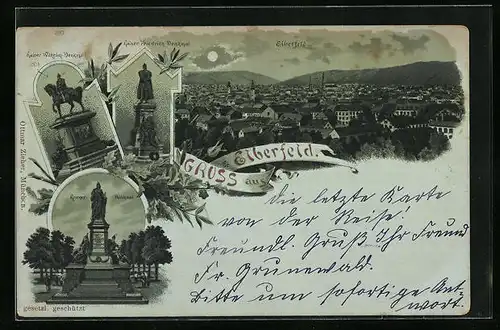 Kaiser Friedrich Denkmal
Elberfeld
Kaiser Wilhelm Denkmal
GRUSS aus Elberfeld.
Krieger Denkmal
Ottmar Zieher, München.
gesetzl. geschützt
Die letzte Karte
von der Reise!
Freundl. Gruß Ihr Freund
Fr. Grunewald.
Bitte um sofortige Ant-
wort.